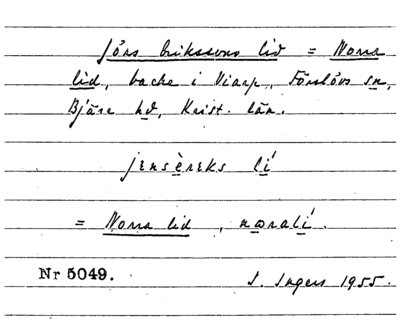 Jöns Erikssons lid = Norra
lid, backe i Viarp, Förslövs sn,
Bjäre hd, Krist. län.
jɛnsèrɛks lí
= Norra lid, nɷralí.
Nr 5049.
I. Ingers 1955.